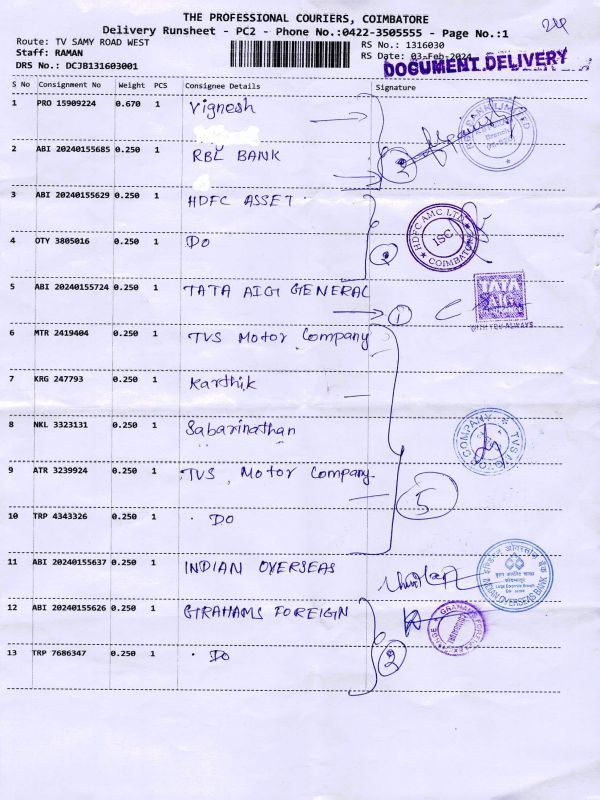 THE PROFESSIONAL COURIERS, COIMBATORE
Delivery Runsheet - PC2 - Phone No.:0422-3505555 - Page No.:1
Route: TV SAMY ROAD WEST
RS No.: 1316030
Staff: RAMAN
RS Date: 03-Feb-2024
DRS No.: DCJB131603001
DOCUMENT DELIVERY
S No Consignment No Weight PCS Consignee Details Signature
1 PRO 15909224 0.670 1 Vignesh
2 ABI 20240155685 0.250 1 RBL BANK
2
3 ABI 20240155629 0.250 1 HDFC ASSET
HDFC AMC LTD
ISC
COIMBATORE
4 OTY 3805016 0.250 1 DO
2
5 ABI 20240155724 0.250 1 TATA AIG GENERAL
1
TATA
AIG
WITH YOU ALWAYS
6 MTR 2419404 0.250 1 TVS Motor Company
7 KRG 247793 0.250 1 Karthik
8 NKL 3323131 0.250 1 Sabarinathan
9 ATR 3239924 0.250 1 TVS Motor Company.
5
10 TRP 4343326 0.250 1 DO
11 ABI 20240155637 0.250 1 INDIAN OVERSEAS
INDIAN OVERSEAS BANK
12 ABI 20240155626 0.250 1 GRAHAMS FOREIGN
13 TRP 7686347 0.250 1 DO
2